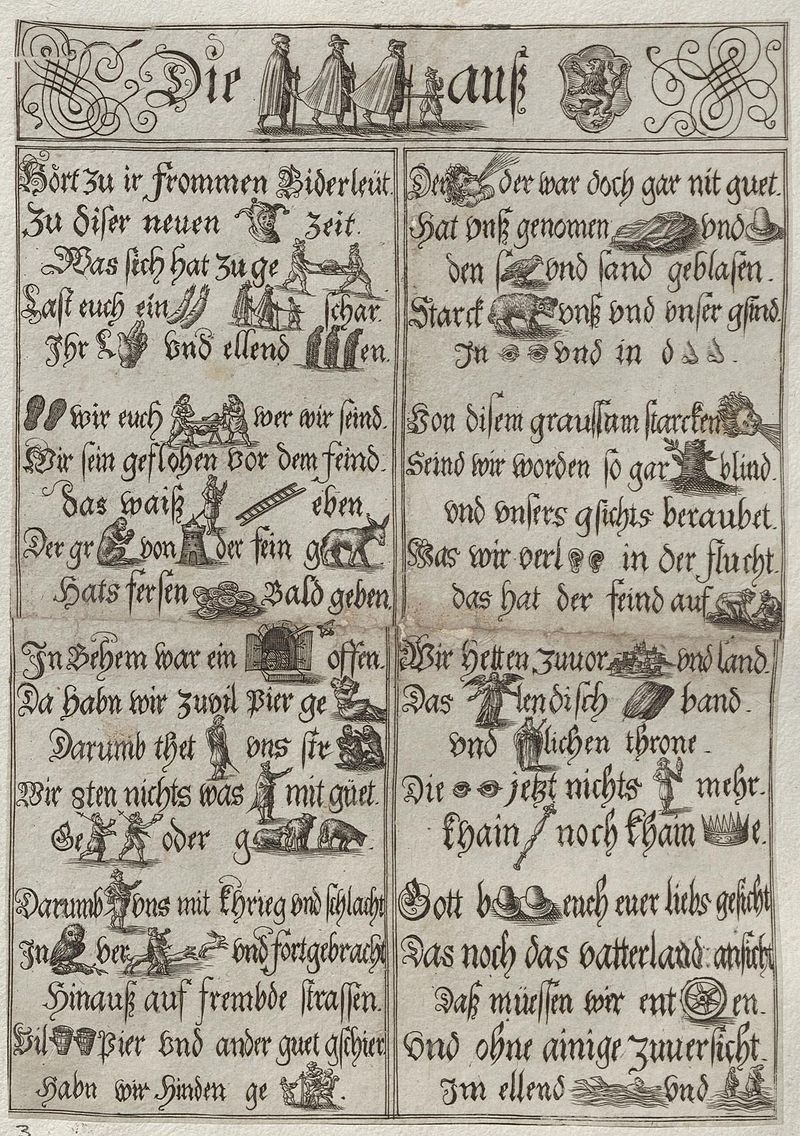 Die auß
Hört zu ir frommen Biderleüt.
Zu diser neuen zeit.
Was sich hat zu ge
Last euch ein schar.
Ihr L vnd ellend en.
wir euch wer wir seind.
Wir sein geflohen vor dem feind.
das waiß eben
Der gr von der fein g
Hats fersen Bald geben.
In Behem war ein offen.
Da habn wir zuvil Pier ge
Darumb thet vns str
Wir 8ten nichts was mit güet.
Ge oder g
Darumb vns mit khrieg vnd schlacht
In ver vnd fortgebracht
Hinauß auf frembde strassen.
Vil Pier vnd ander guet gschier
Habn wir hinden ge .
Der der war doch gar nit guet.
Hat vnß genomen vnd
den s vnd sand geblasen.
Starck vnß vnd vnser gsind.
In vnd in d .
Von disem graussam starcken
Seind wir worden so gar blind.
vnd vnsers gsichts beraubet.
Was wir verl in der flucht.
das hat der feind auf
Wir hetten zuuor vnd land.
Das lendisch band.
vnd lichen throne.
Die jetzt nichts mehr.
khain noch kham e.
Gott b euch euer liebs gesicht
Das noch das vatterland ansicht
Daß müessen wir ent en.
Vnd ohne ainige zuuersicht.
Im ellend vnd
3